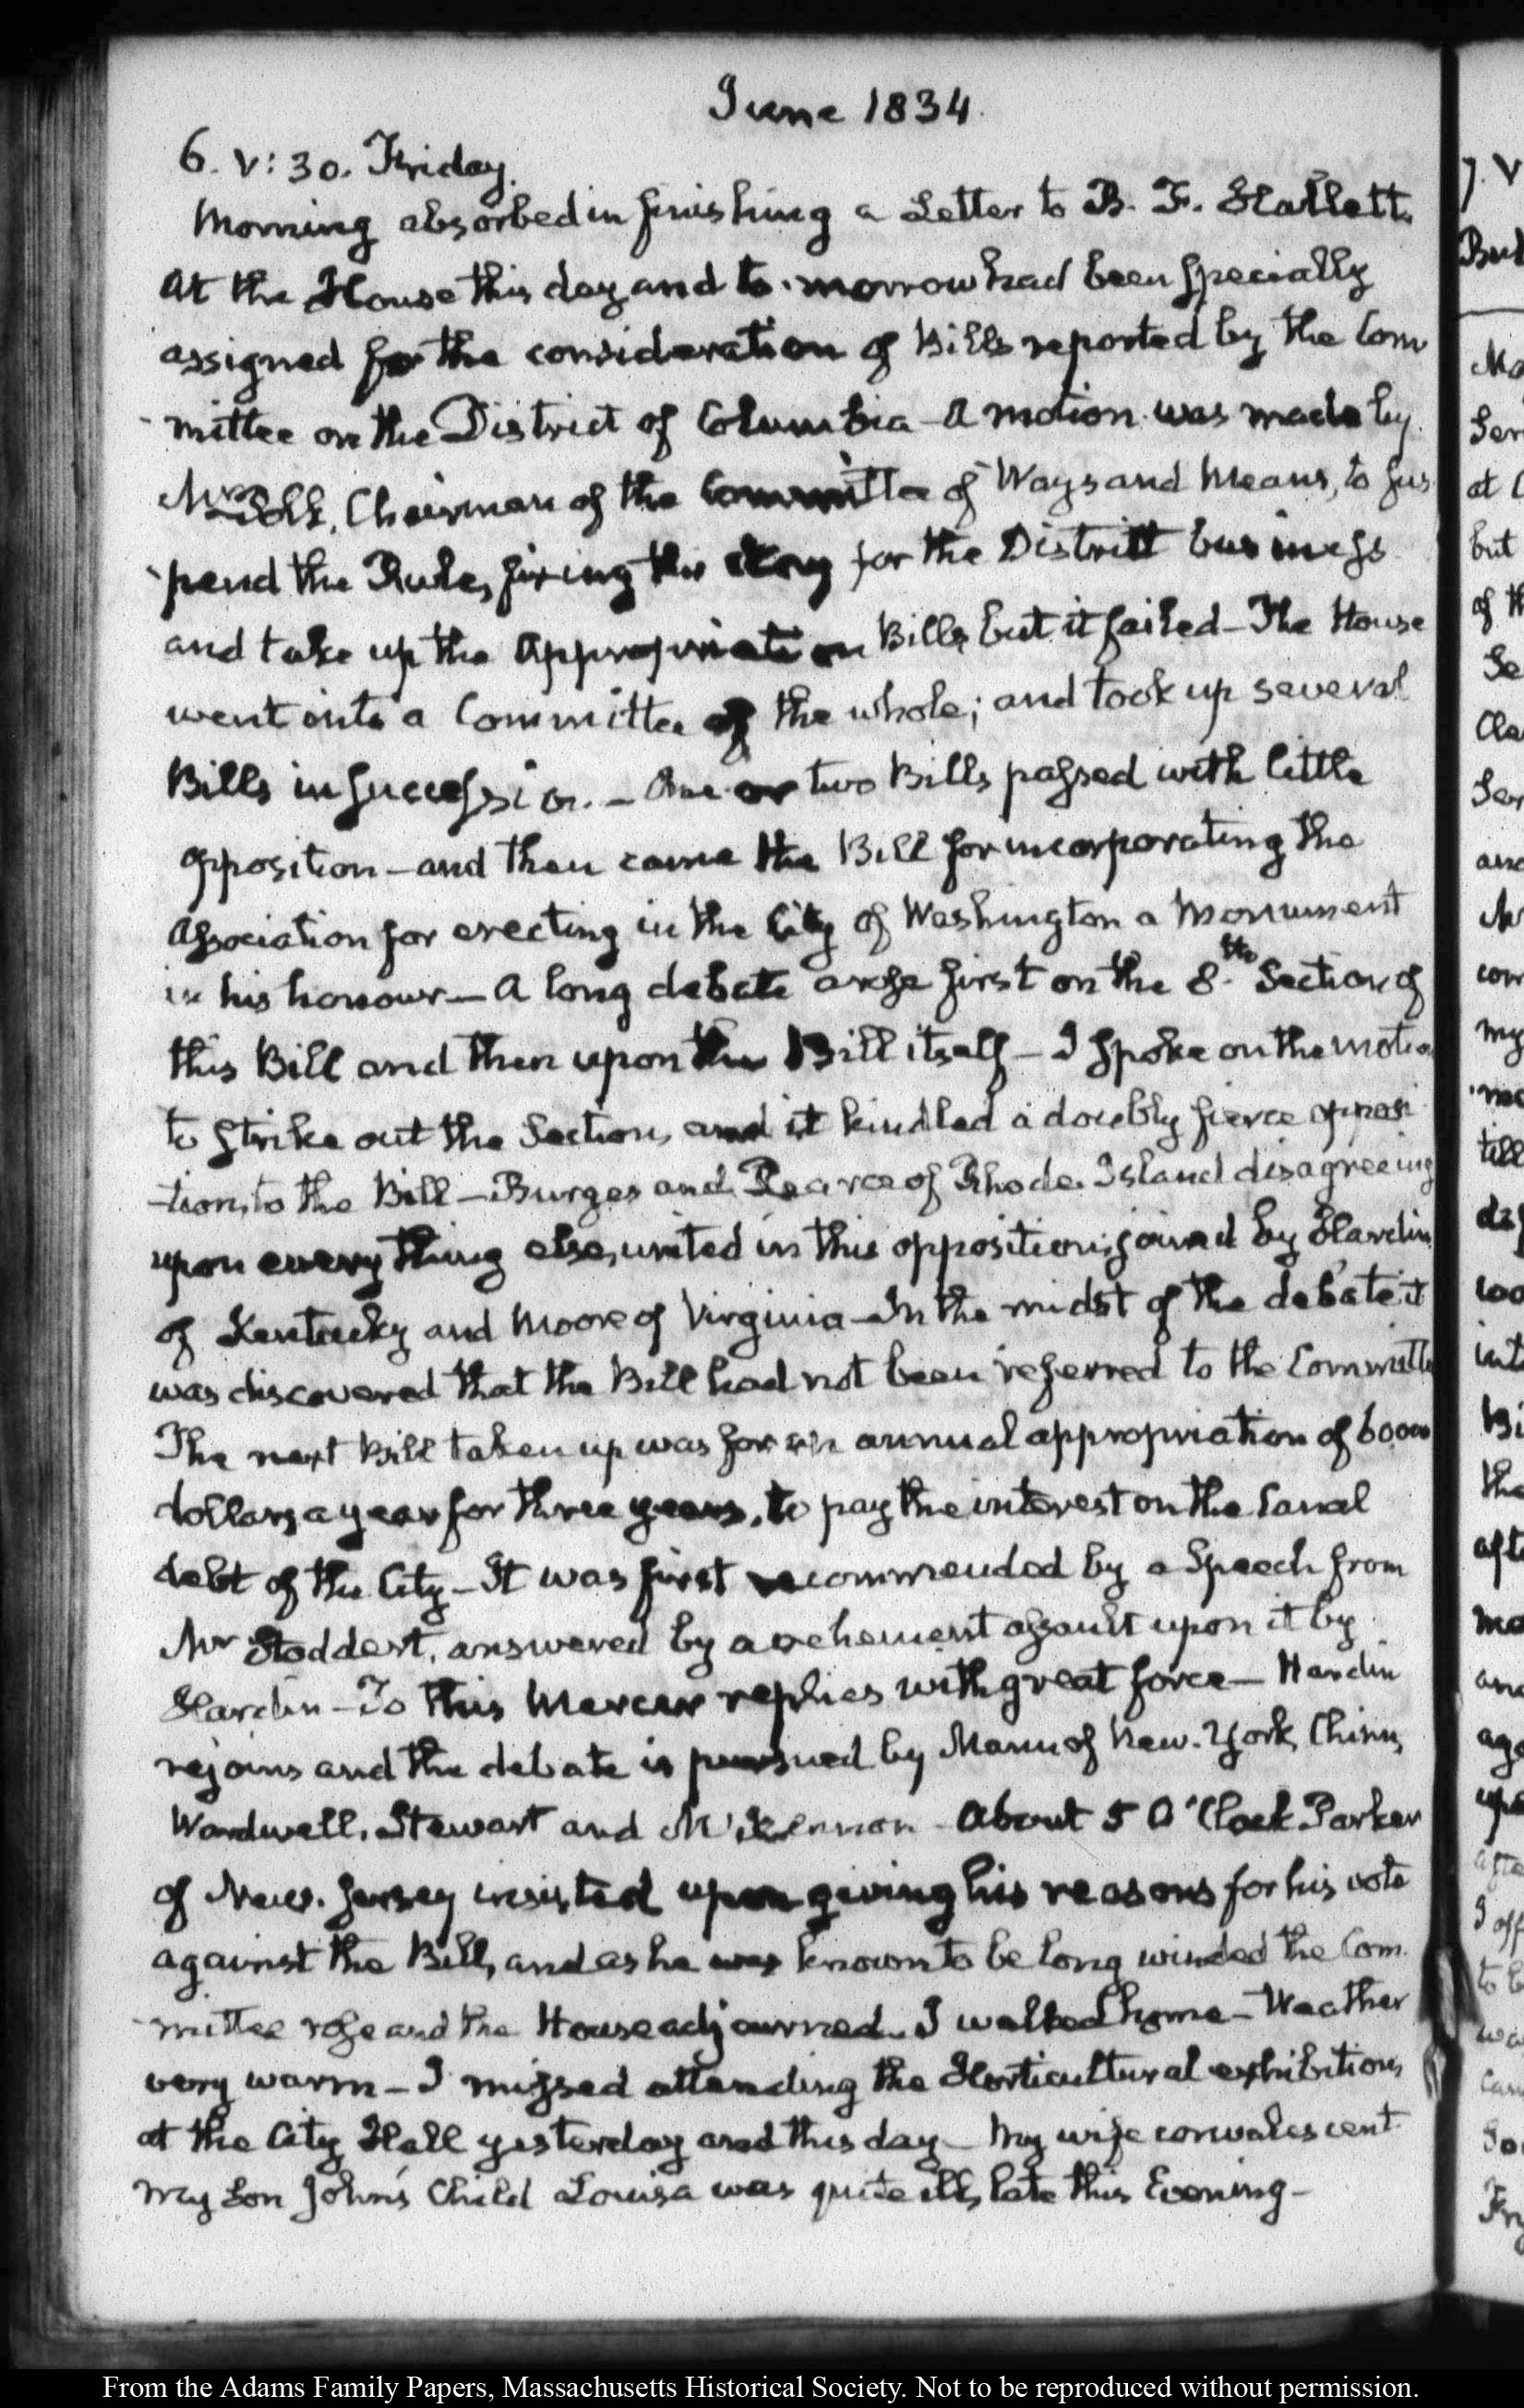 June 1834.
6. V: 30. Friday.
Morning absorbed in finishing a Letter to B. F. Hallett.
At the House this day and to-morrow had been specially
assigned for the consideration of Bills reported by the Com
mittee on the District of Columbia - A motion was made by
Mr Polk, Chairman of the Committee of Ways and Means, to sus
pend the Rule, fixing this day for the District business
and take up the Appropriation Bills but it failed - The House
went into a Committee of the whole; and took up several
Bills in succession. - One or two Bills passed with little
opposition - and then came the Bill for incorporating the
Association for erecting in the City of Washington a Monument
in his honour - A long debate arose first on the 8th Section of
this Bill and then upon the Bill itself - I spoke on the motion
to strike out the Section, and it kindled a doubly fierce opposi
-tion, to the Bill - Burges and Pearce of Rhode Island disagreeing
upon every thing else, united in this opposition; joined by Hardin
of Kentucky and Moore of Virginia - In the midst of the debate it
was discovered that the Bill had not been referred to the Committee
The next Bill taken up was for an annual appropriation of 60000
dollars a year for three years, to pay the interest on the Canal
debt of the City - It was first recommended by a Speech from
Mr Stoddert, answered by a vehement assault upon it by
Hardin - To this Mercer replies with great force - Hardin
rejoins and the debate is pursued by Mann of New-York, Chinn,
Wardwell, Stewart and McKennan - About 5 O'Clock Parker
of New-Jersey insisted upon giving his reasons for his vote
against the Bill, and as he was known to be long winded the Com
mittee rose and the House adjourned. I walked home - Weather
very warm - I missed attending the Horticultural exhibition,
at the City Hall yesterday and this day - My wife convalescent
My Son John's Child Louisa was quite ill, late this Evening -
From the Adams Family Papers, Massachusetts Historical Society. Not to be reproduced without permission.